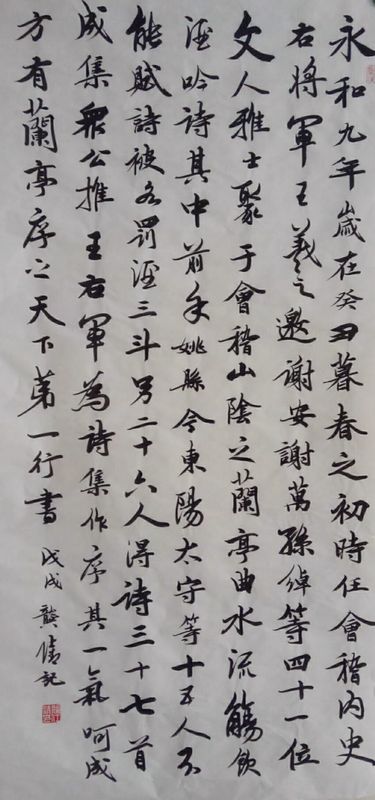 永和九年歲在癸丑暮春之初時任會稽内史
右將軍王羲之邀謝安謝萬孫綽等四十一位
文人雅士聚于會稽山陰之蘭亭曲水流觴飲
酒吟詩其中前余姚縣令東陽太守等十五人不
能賦詩被各罰酒三斗另二十六人得詩三十七首
成集眾公推王右軍為詩集作序其一氣呵成
方有蘭亭序之天下第一行書
戊戌龔倩記